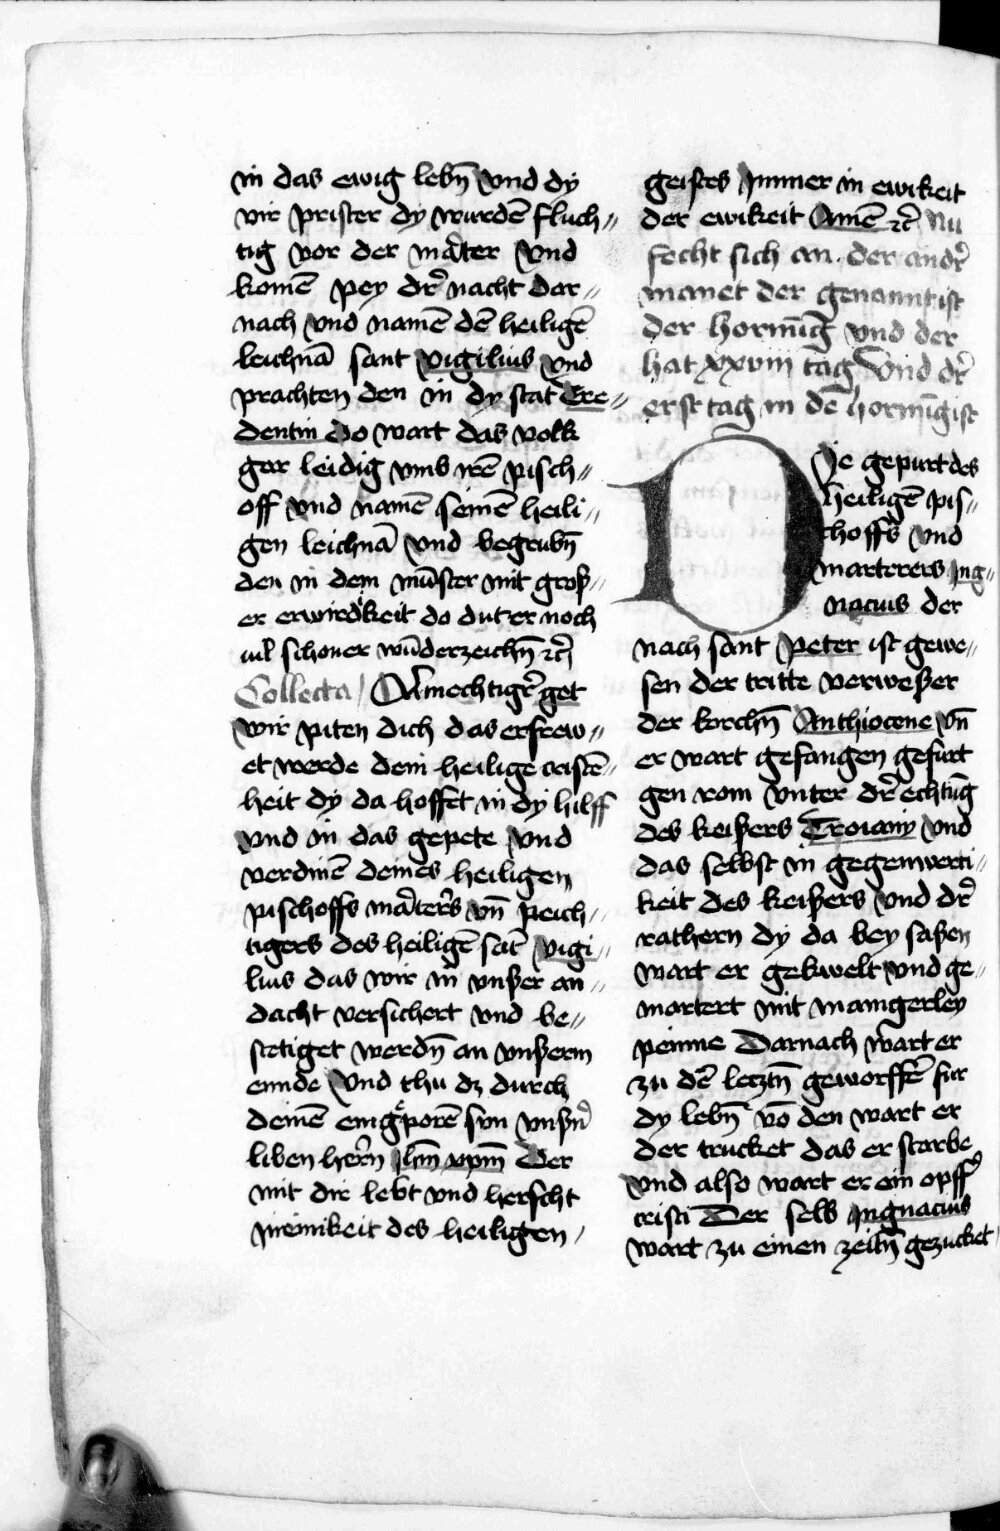 in das ewig lebn̄ vnd dy
vir prister dy wurdē fluch〃
tig vor der mat̄er vnd
komē pey dr̄ nacht dar〃
nach vnd namē dē heiligē
leichnā sant vigilius vnd
prachten den in dy stat Tre〃
dentin do wart das volk
gar leidig vmb irē pisch〃
off vnd namē seinē heili〃
gen leichnā vnd begrubn̄
den in dem mūster mit groß〃
er erwird̓keit do dut er noch
vil schoner wūderzeichn̄ ꝛc̄
Collecta Almechtigr̄ got
wir piten dich das erfrew〃
et werde dein heilige cristē〃
heit dy da hoffet in dy hilff
vnd in das gepete vnd
verdinē deines heiligen
pischoffs mat̄ers vn̄ peich〃
tigers des heiligē sāt vigi〃
lius das wir in vnßer an〃
dacht versichert vnd be〃
stetiget werdn̄ an vnßerm
ennde vnd thu dz durch
deinē enigporē sun vnßn̄
liben hern̄ Jhm̄ xpm̄ Der
mit dir lebt vnd herscht
in einikeit des heiligen
geistes ymmer in ewikeit
der ewikeit Amē ꝛc̄ Nu
fecht sich an der andr̄
manet der genannt ist
der hornūg vnd der
hat xxviii tag vnd dr̄
erst tag in dē hornūg ist
Die gepurt des
heiligē pis〃
choffs vnd
marterers ing〃
nacius der
nach sant Peter ist gewe〃
sen der tritte verweßer
der kirchn̄ Anthiocene vn̄
er wart gefangen gefurt
gen rom vnter dr̄ echtūg
des keißers Troiany vnd
das selbst in gegenwerti〃
keit des keißers vnd dr̄
rathern dy da bey saßen
wart er gekwelt vnd ge〃
martert mit mangerley
peinne Darnach wart er
zu dē letztn̄ geworffē fur
dy lebn̄ vō den wart er
der trucket das er starbe
vnd also wart er ein opff̓
cristi Der selb Ingnacius
wart zu einen zeitn̄ gezucket